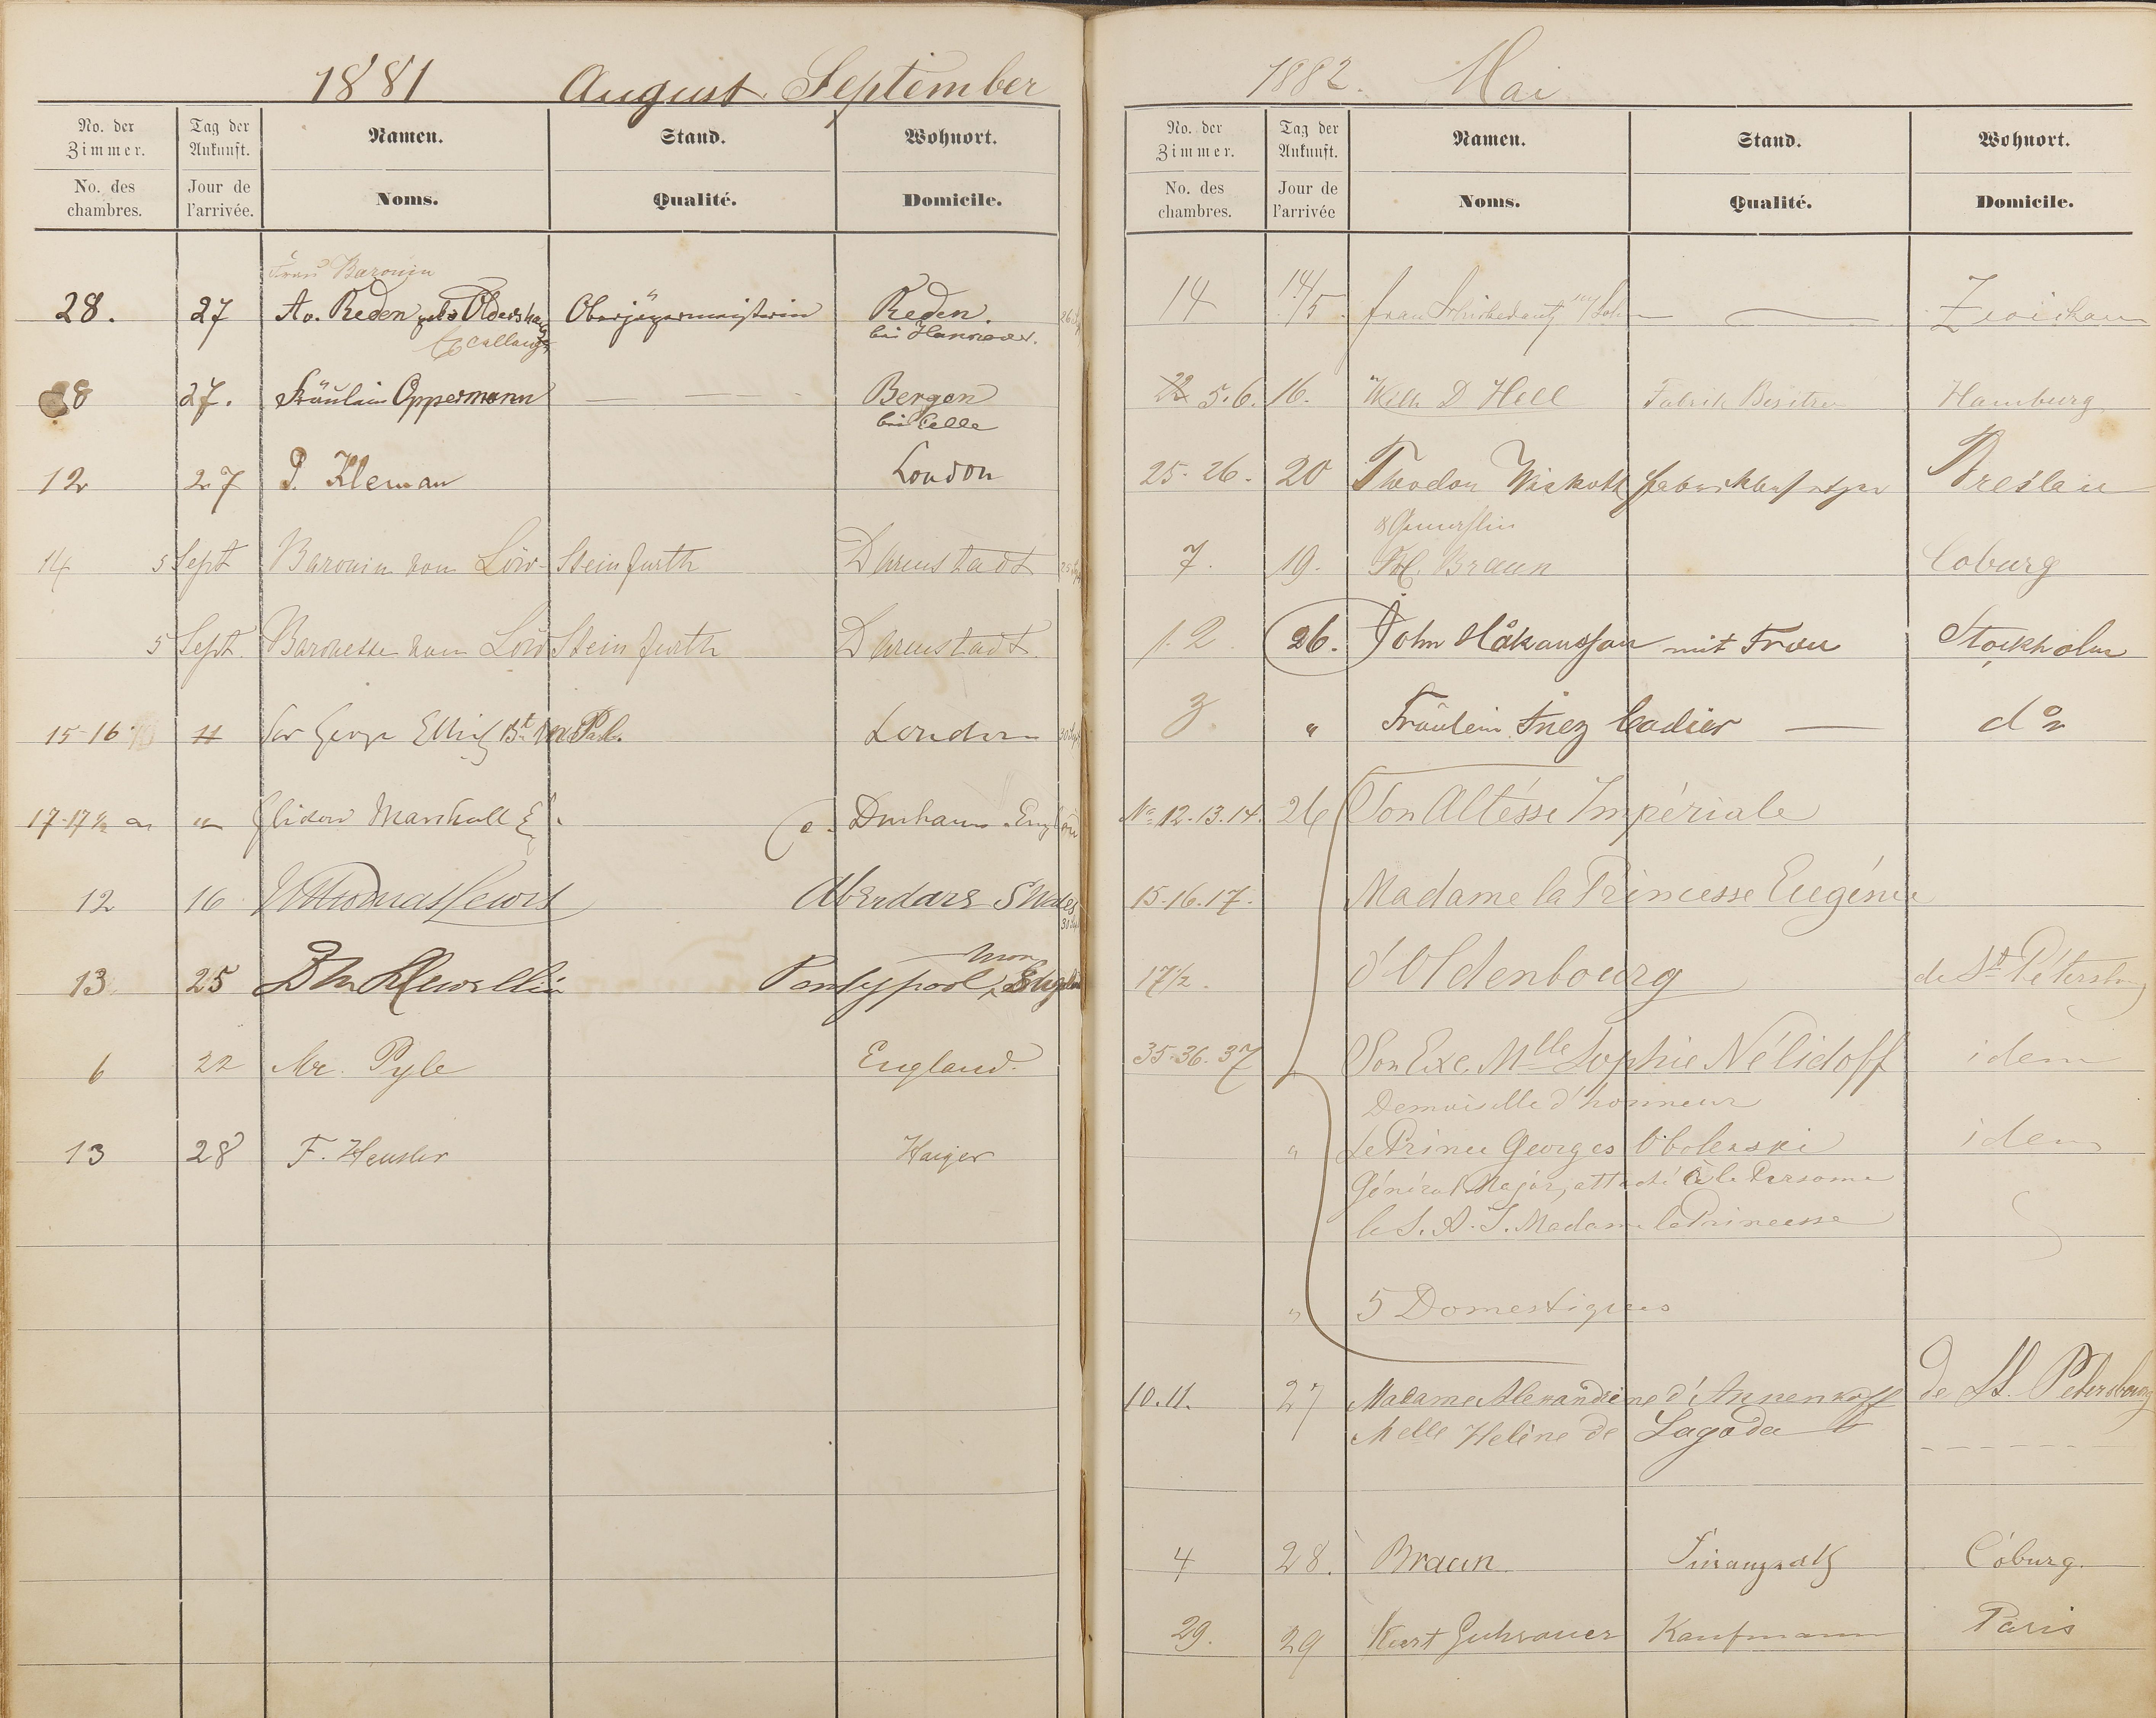 1881 August. September
No. der Zimmer. Tag der Ankunft. Namen. Stand. Wohnort.
No. des chambres. Jour de l'arrivée. Noms. Qualité. Domicile.
Frau Baronin
28. 27 v. Reden geb. Oldershausen Oberjägermeisterin Reden.
bei Hannover.
8 27. Fräulein Oppermann Bergen
bei Celle
12 27 P. Kleman London
14 5 Sept Baronin von Löw-Steinfurth Darmstadt
5 Sept. Baronesse von Löw Steinfurth Darmstadt.
15-16 11 George Elliot Bt. M.P. London
17-17½ " Marshall Durham England
12 16 W Thomas Lewis Aberdare S Wales
Mon
13 25 Llewellin Pontypool England
6 22 Mr. Pyle England.
13 28 F. Heusler Haiger
1882. Mai
No. der Zimmer. Tag der Ankunft. Namen. Stand. Wohnort.
No. des chambres. Jour de l'arrivée Noms. Qualité. Domicile.
14 14/5 Frau Zwickau
22 5.6. 16. Wilh D Hell Fabrik Besitzer Hamburg
25-26. 20 Theodor Wiskott Breslau
& Gemahlin
7. 19. Braun Coburg
1.2. 26. John Håkansson mit Frau Stockholm
3. " Fräulein Inez Cadier do
No. 12.13.14. 26 Son Altésse Impériale
15.16.17. Madame la Princesse Eugénie
17½. d'Oldenbourg de St. Pétersbourg
35.36.37 Son Exc. Mlle Sophie Nélidoff idem
Demoiselle d'honneur
" Le Prince Georges Obolenski idem
Général Major, attaché à la Personne
de S. A. I. Madame la Princesse
" 5 Domestiques
10.11. 27 Madame Alexandrine d'Annenkoff de St. Petersbourg
Melle Helène de Lagoda
4 28. Braun Finanzrath Coburg.
29. 29 Kurt Guhrauer Kaufmann Paris